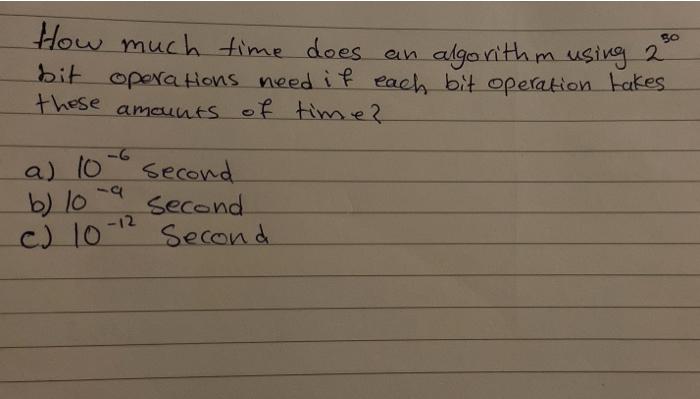 How much time does an algorithm using 2^50
bit operations need if each bit operation takes
these amounts of time?
a) 10^-6 second
b) 10^-9 second
c) 10^-12 Second